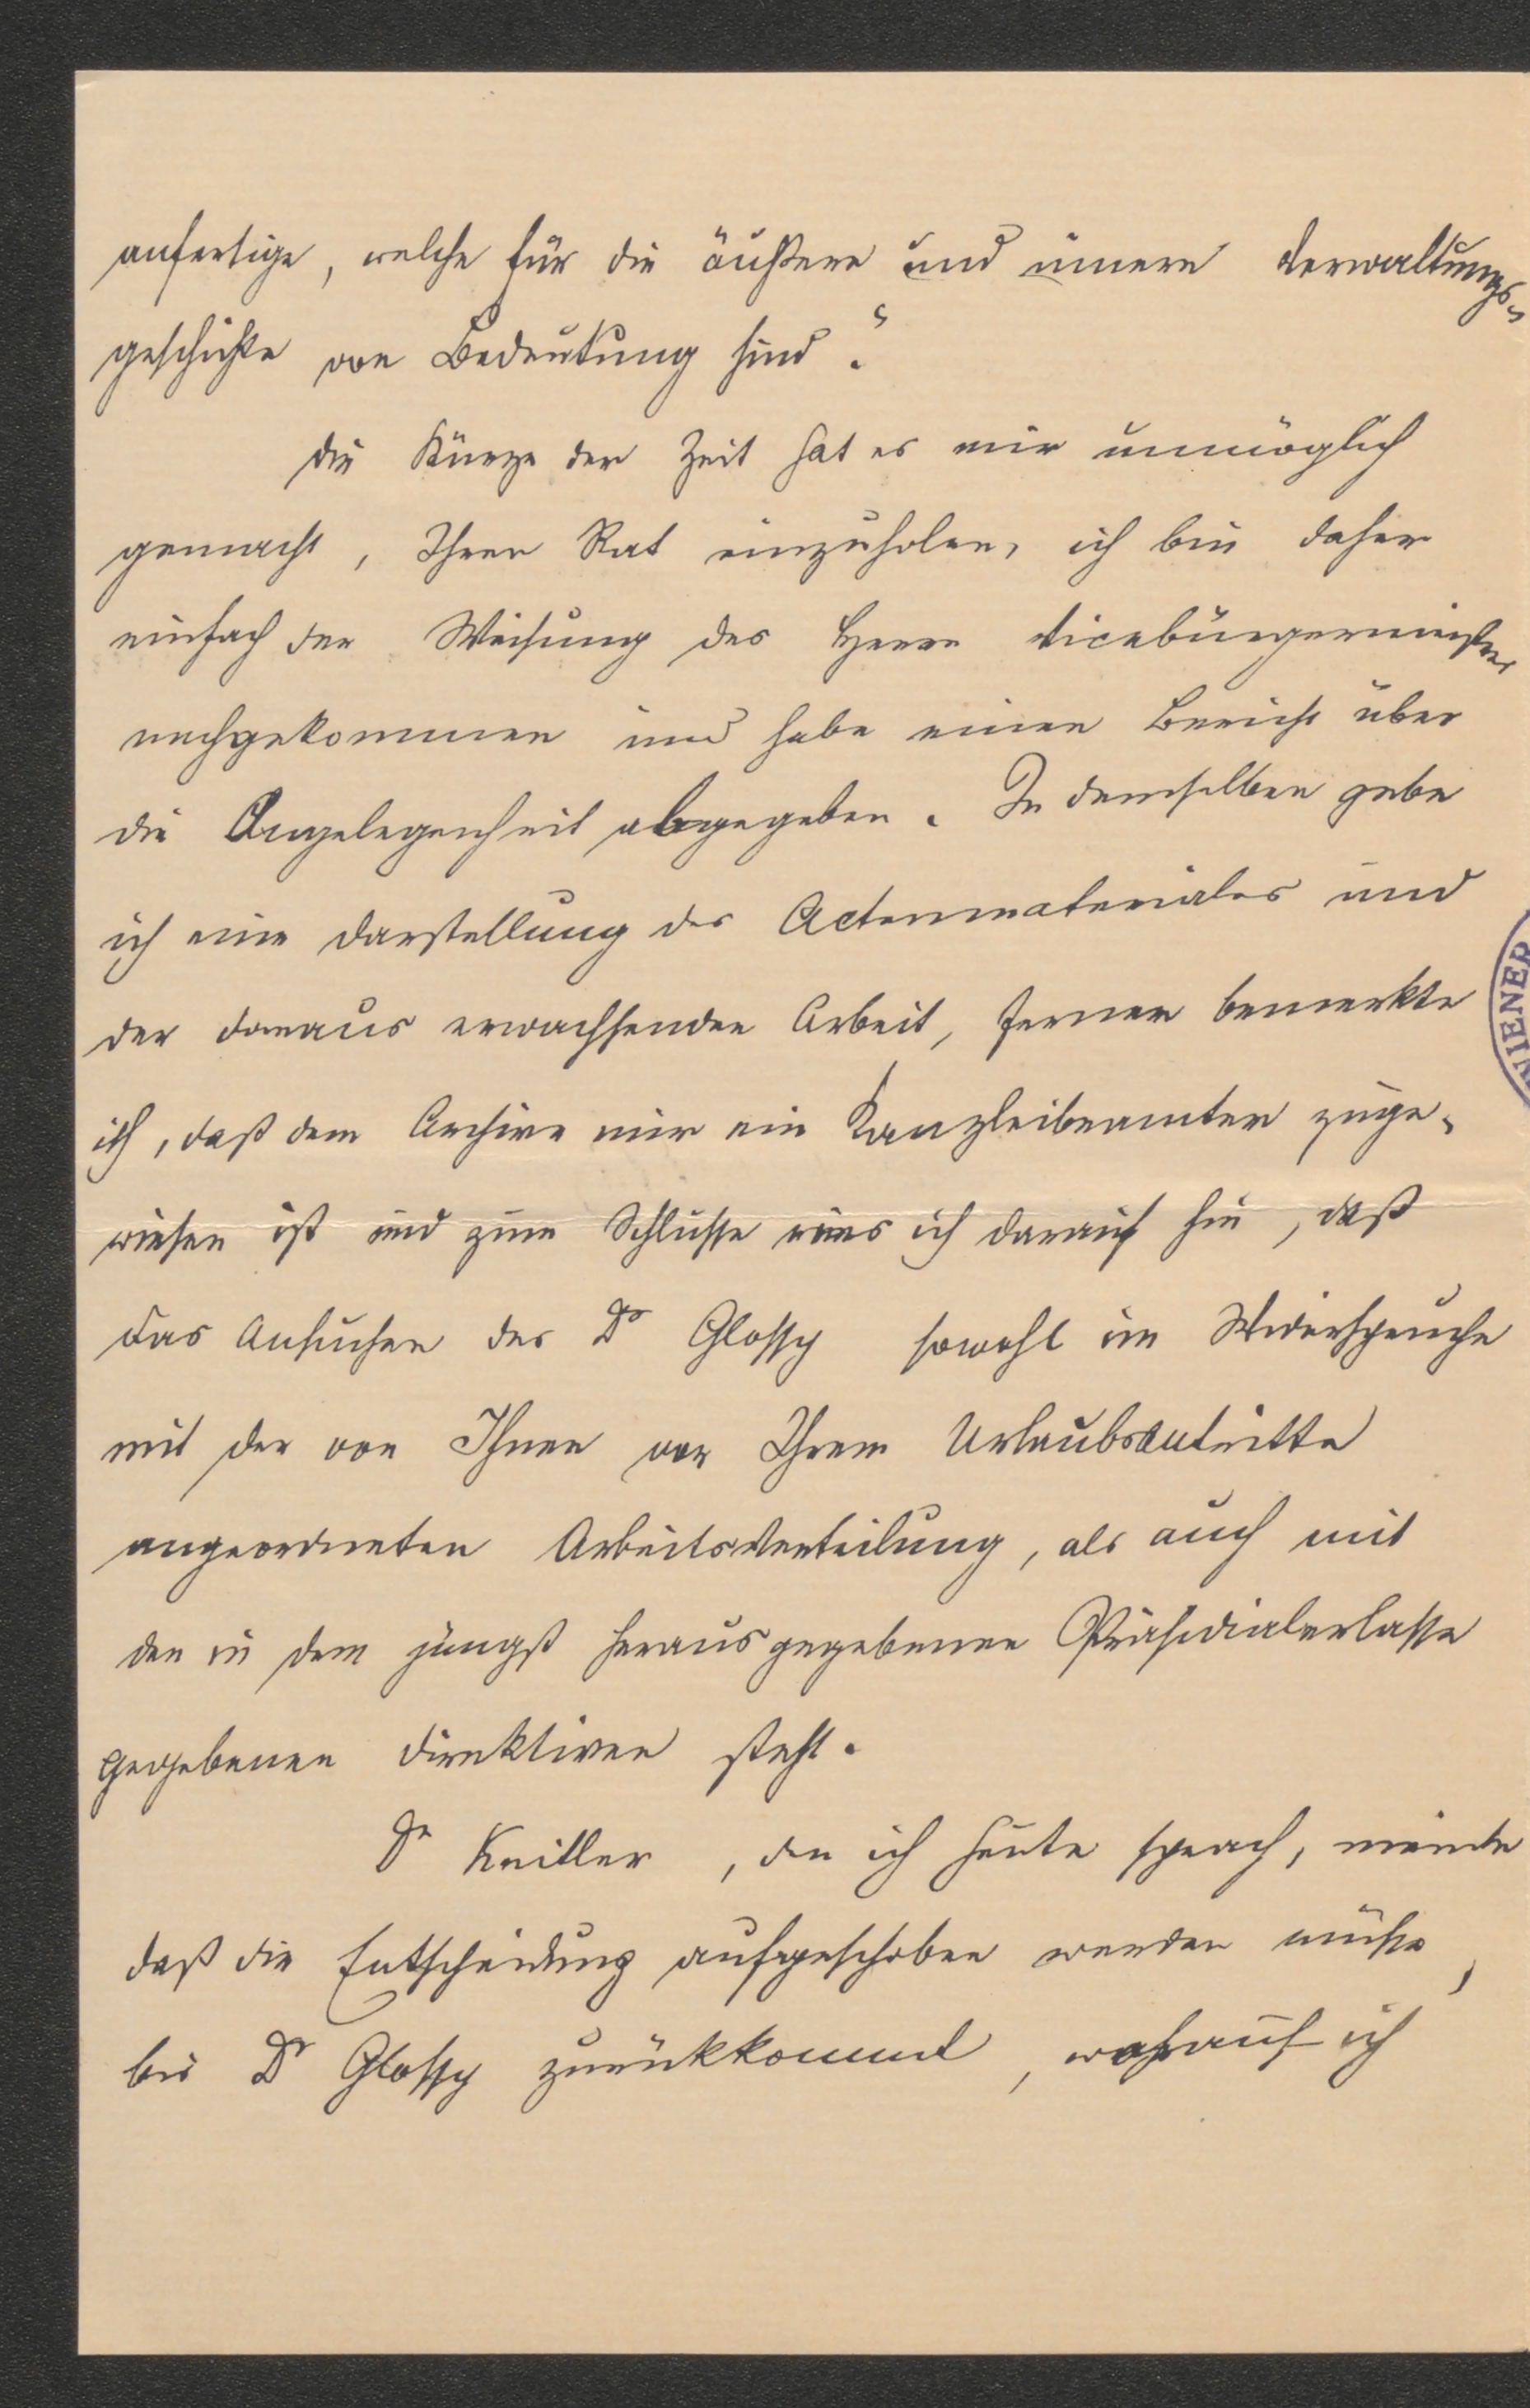 anfertige, welche für die äußere und innere Verwaltungs-
geschichte von Bedeutung sind."
Die Kürze der Zeit hat es mir unmöglich
gemacht, Ihren Rat einzuholen, ich bin daher
einfach der Weisung des Herrn Vicebürgermeister
nachgekommen und habe einen Bericht über
die Angelegenheit abgegeben. In demselben gebe
ich eine Darstellung des Actenmateriales und
der daraus erwachsenden Arbeit, ferner bemerkte
ich, daß dem Archive nur ein Kanzleibeamter zuge-
wiesen ist und zum Schlusse wies ich darauf hin, daß
das Ansuchen des Dr Glossy sowohl im Widerspruche
mit der von Ihnen vor Ihrem Urlaubsantritte
angeordneten Arbeitsverteilung, als auch mit
den in dem jüngst herausgegebenen Präsidialerlasse
gegebenen Direktiven steht.
Dr , den ich heute sprach, meinte
daß die Entscheidung aufgeschoben werden müsse,
bis Dr Glossy zurückkommt, worauf ich
WIENER